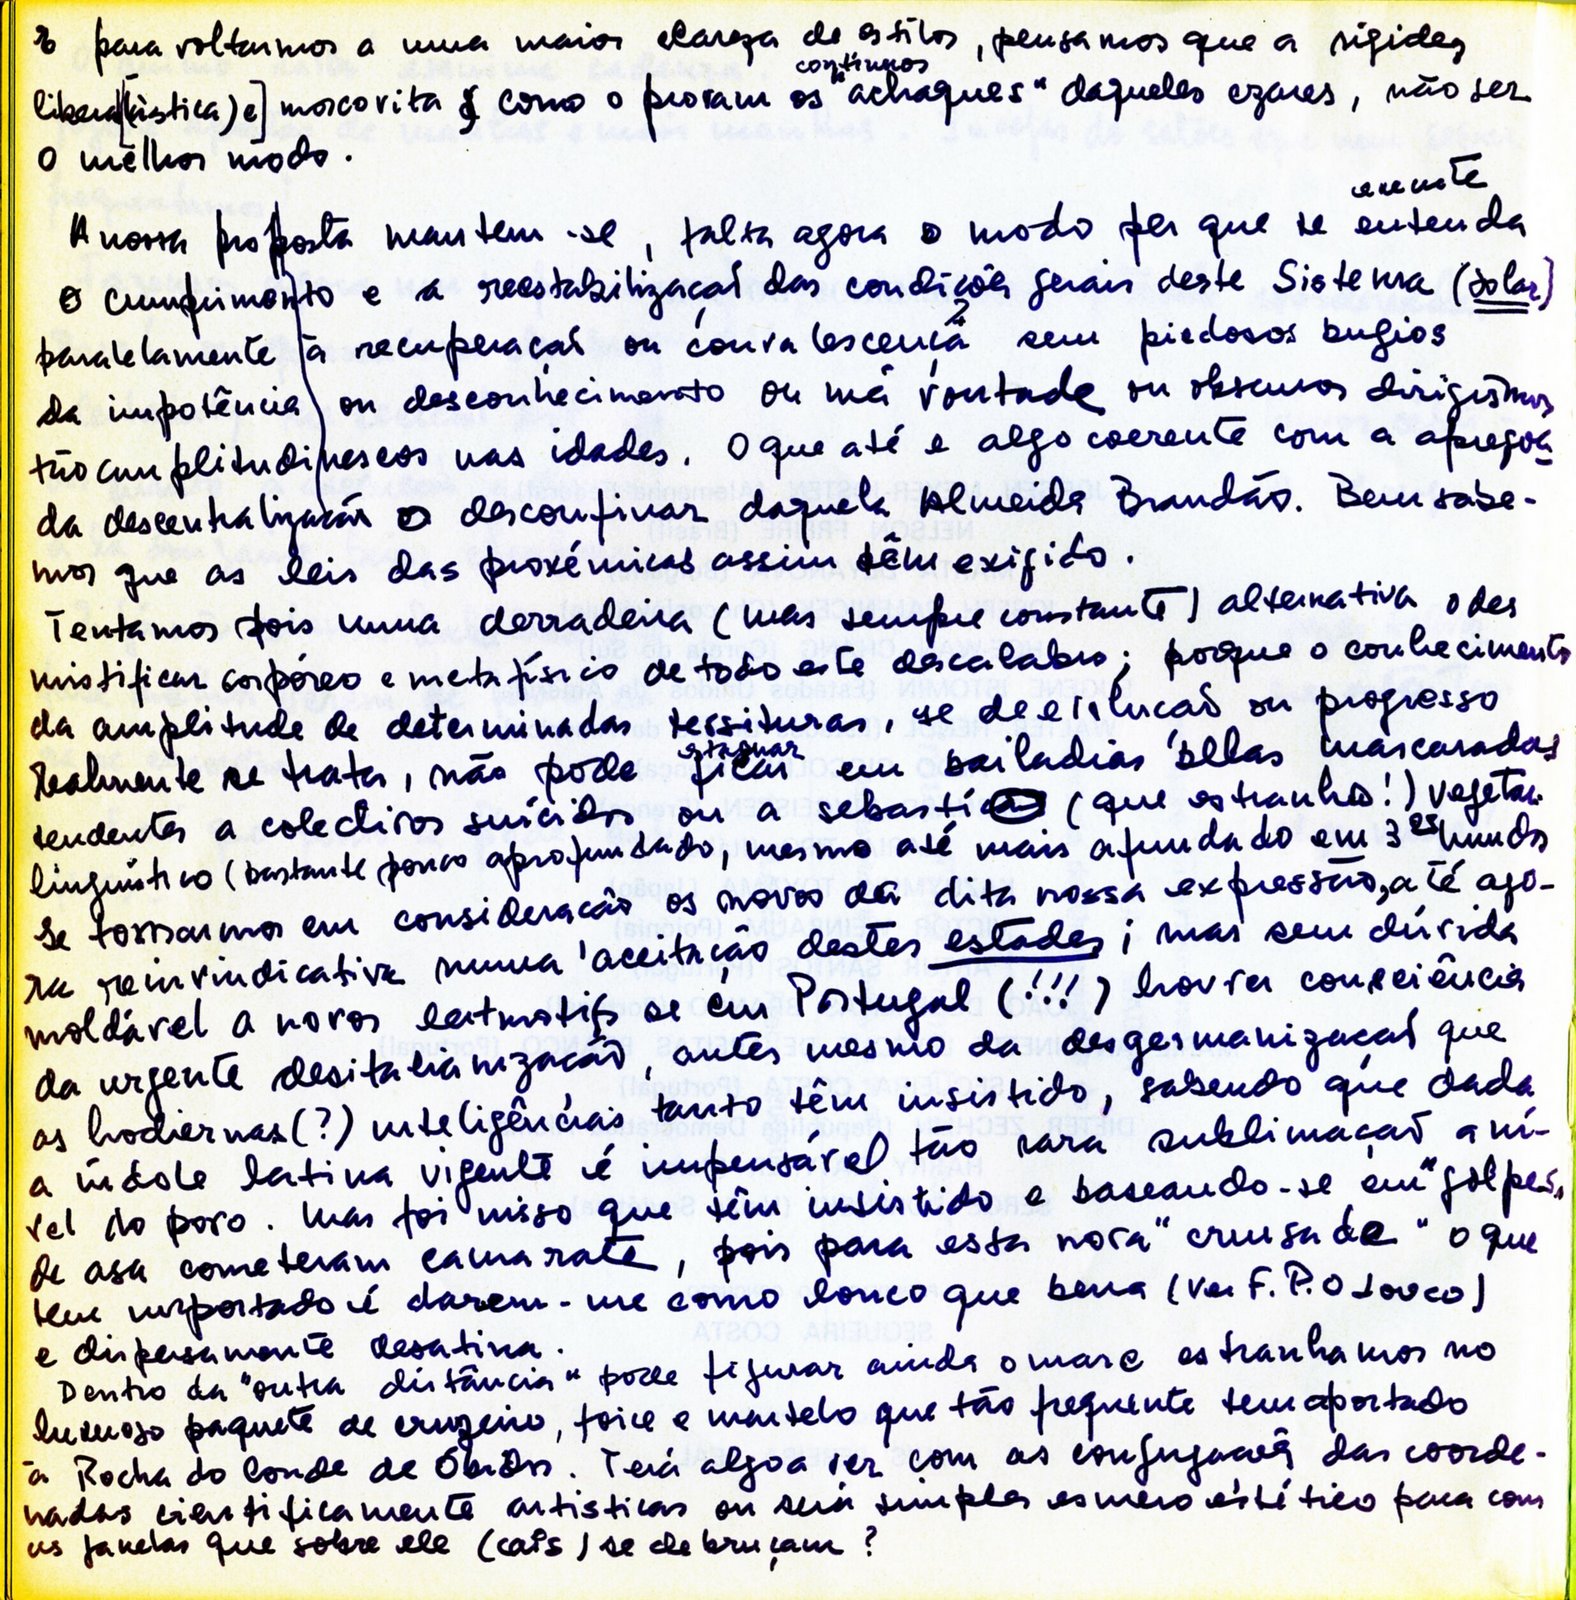 para voltarmos a uma maior clareza de estilos, pensamos que a rigidez
libera[(ística) e] moscovita como o provam os contínuos "achaques" daqueles czares, não ser
o melhor modo.
A nossa proposta mantem-se, falta agora o modo per que se execute entenda
o cumprimento e a reestabilização das condições gerais deste Sistema (solar)
paralelamente à recuperação ou convalescença sem piedosos bugios
da impotência ou desconhecimento ou má vontade ou obscuros dirigismos
tão amplitudinescos nas idades. O que até e algo coerente com a apregoa
da descentralização o desconfinar daquela Almeida Brandão. Bem sabe-
mos que as leis das proxémicas assim têm exigido.
Tentamos pois uma derradeira (mas sempre constante) alternativa o des
mistificar corpóreo e metafísico de todo este descalabro; porque o conhecimento
da amplitude de determinadas tessituras, se de evolução ou progresso
realmente se trata, não pode estagnar ficar em bailadias bllas mascaradas
tendentes a colectivos suícidios ou a sebastía (que estranho!) vegetar
linguístico (bastante pouco aprofundado, mesmo até mais afundado em 3.os mundos
se tomarmos em consideração os novos da dita nossa expressão, até ago-
ra reinvindicativa numa aceitação destes estados; mas sem dúvida
moldável a novos leitmotifs se em Portugal (!!!) houver consciência
da urgente desitalianização, antes mesmo da desgermanização que
as hodiernas (?) inteligências tanto têm insistido, sabendo que dada
a índole latina vigente é impensável tão rara sublimação a ní-
vel do povo. Mas foi nisso que têm insistido e baseando-se em "golpes
de asa cometeram camarate, pois para essa nova "crusade" o que
tem importado é darem-me como louco que bena (ver F.P. O Louco)
e dispersamente desatina.
Dentro da "outra distância" pode figurar ainda o mar e estranhamos no
luxuoso paquete de cruzeiro, foice e martelo que tão frequente tem aportado
à Rocha do Conde de Óbidos. Terá algo a ver com as conjugações das coorde-
nadas cientificamente artisticas ou será simples esmero estético para com
as janelas que sobre ele (cais) se debruçam?